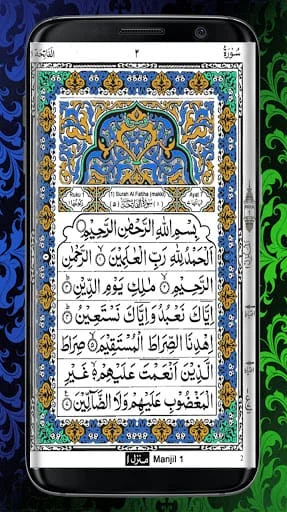 سُوْرَةُ ٢ اَلْفَاتِحَة
(1) Surah Al Fatiha (makki)
Ruku
Ayat
بِسْمِ اللّٰهِ الرَّحْمٰنِ الرَّحِيْمِ
اَلْحَمْدُ لِلّٰهِ رَبِّ الْعٰلَمِيْنَ ۝ الرَّحْمٰنِ
الرَّحِيْمِ ۝ مٰلِكِ يَوْمِ الدِّيْنِ ۝
اِيَّاكَ نَعْبُدُ وَاِيَّاكَ نَسْتَعِيْنُ ۝
اِهْدِنَا الصِّرَاطَ الْمُسْتَقِيْمَ ۝ صِرَاطَ
الَّذِيْنَ اَنْعَمْتَ عَلَيْهِمْ ۝ غَيْرِ
الْمَغْضُوْبِ عَلَيْهِمْ وَلَا الضَّآلِّيْنَ ۝
منزل ١ Manjil 1
2